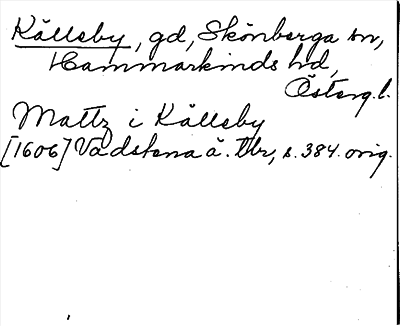 Källeby, gd, Skönberga sn,
Hammarkinds hd,
Österg.l.
Mattz i Källeby
[1606] Vadstena ä. Tbr, s. 384. orig.